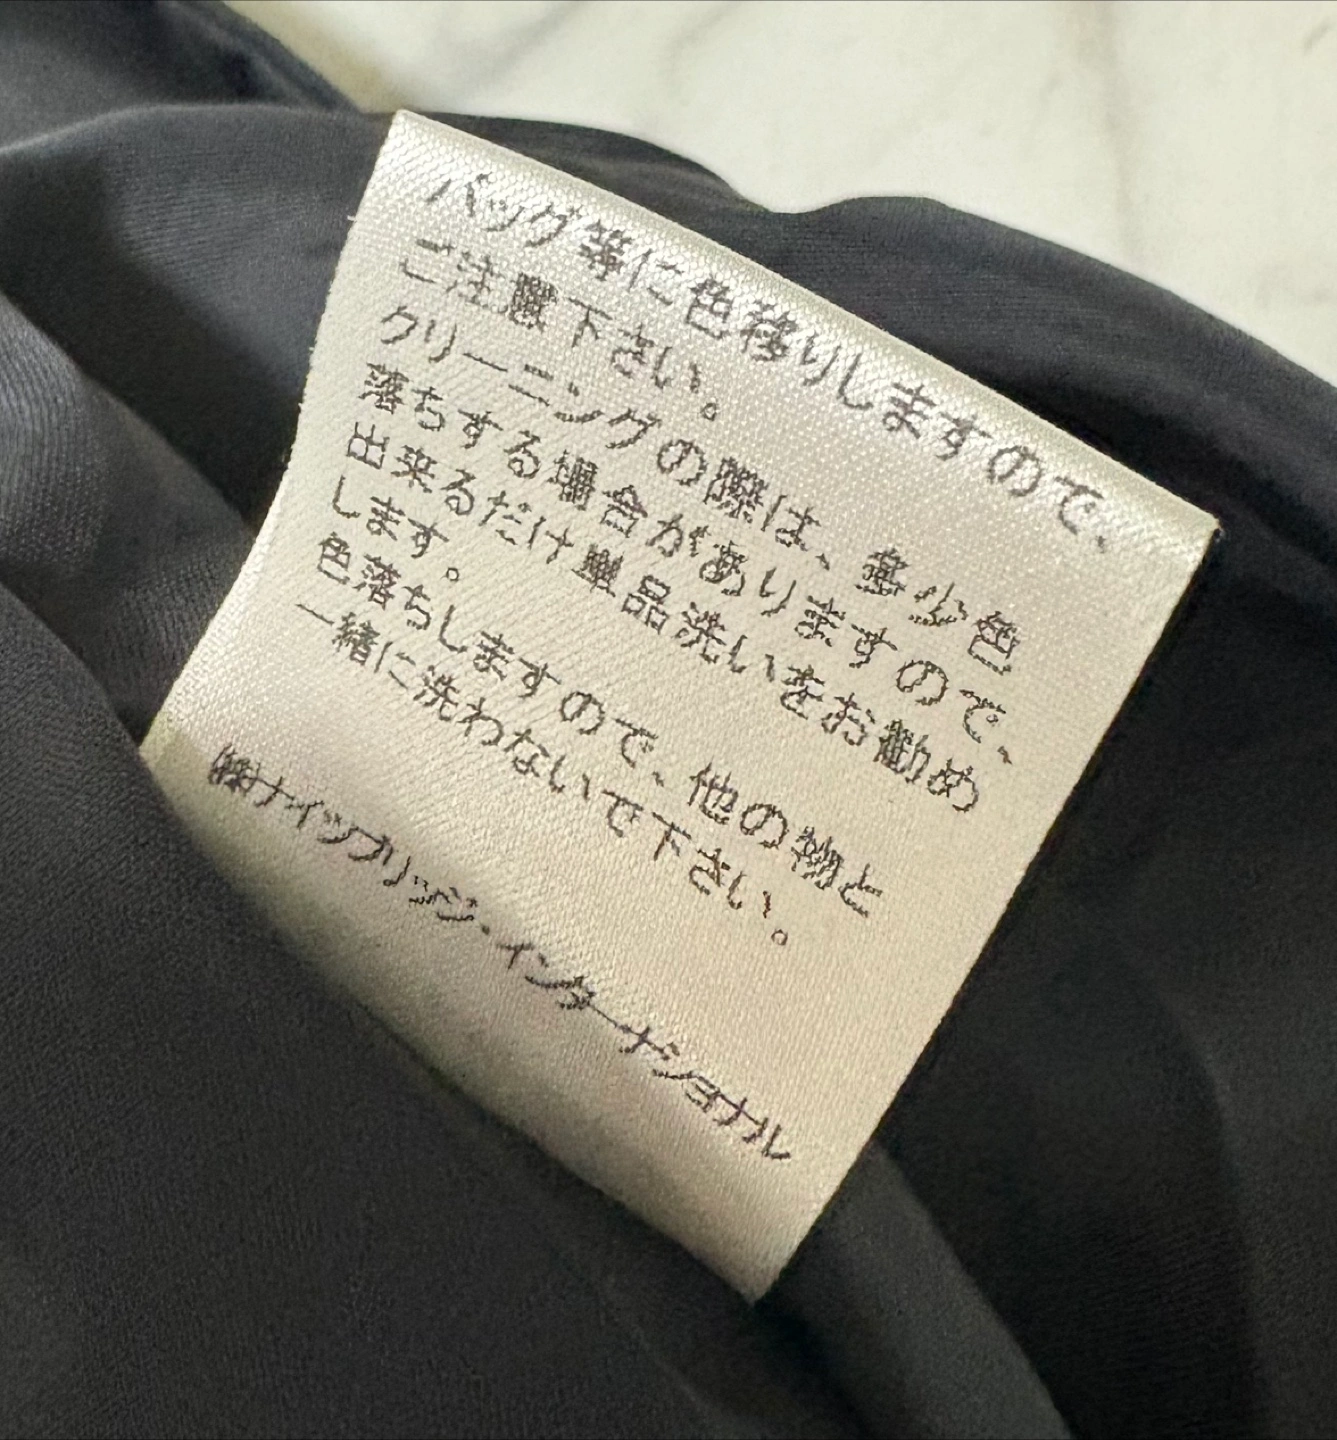 バッグ等に色移りしますので、
ご注意下さい。
クリーニングの際は、多少色
落ちする場合がありますので、
出来るだけ単品洗いをお勧め
します。
色落ちしますので、他の物と
一緒に洗わないで下さい。
㈱ナイツブリッジ・インターナショナル